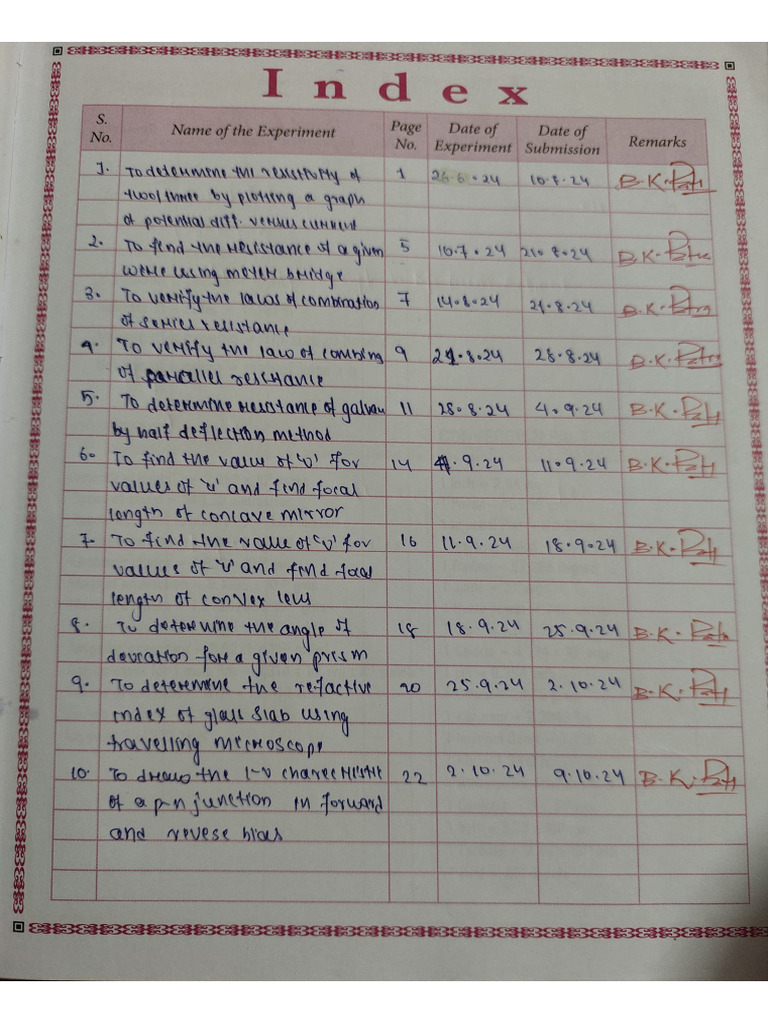 Index
S. No. Name of the Experiment Page No. Date of Experiment Date of Submission Remarks
1. To determine the resistivity of 1 26.6.24 10.7.24 B.K.
by plotting a graph
of potential diff. versus current
2. To find the resistance of a given 5 10.7.24 21.8.24 B.K.
wire using meter bridge
3. To verify the laws of combination 7 14.8.24 21.8.24 B.K.
of series resistance
4. To verify the law of combing 9 21.8.24 28.8.24 B.K.
of parallel resistance
5. To determine resistance of galvan 11 28.8.24 4.9.24 B.K.
by half deflection method
6. To find the value of 'v' for 14 4.9.24 11.9.24 B.K.
values of 'u' and find focal
length of concave mirror
7. To find the value of 'v' for 16 11.9.24 18.9.24 B.K.
values of 'u' and find focal
length of convex lens
8. To determine the angle of 18 18.9.24 25.9.24 B.K.
deviation for a given prism
9. To determine the refactive 20 25.9.24 2.10.24 B.K.
index of glass slab using
travelling microscope
10. To draw the I-V 22 2.10.24 9.10.24 B.K.
of a p-n junction in forward
and revese bias